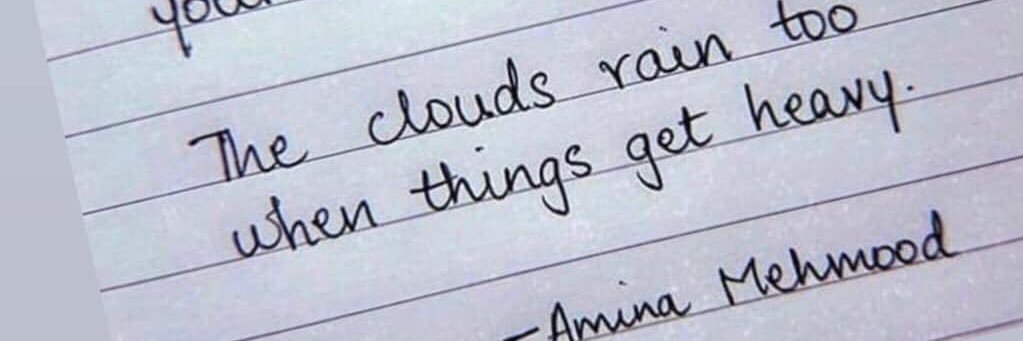 The clouds rain too
when things get heavy.
—Amina Mehmood